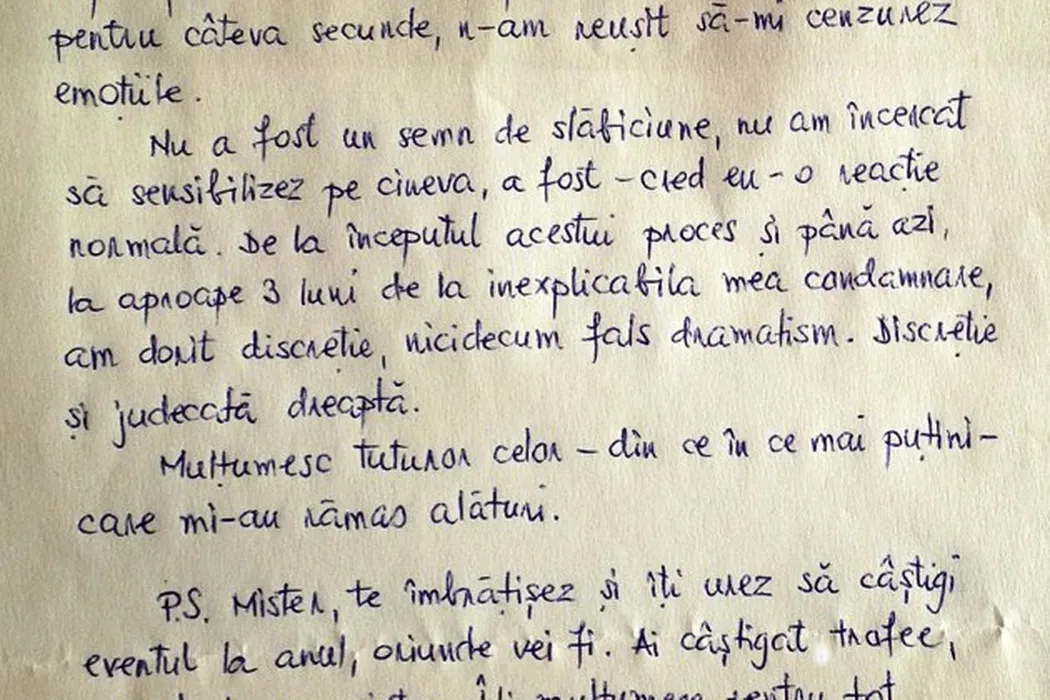 pentru câteva secunde, n-am reușit să-mi cenzurez
emoțiile.
Nu a fost un semn de slăbiciune, nu am încercat
să sensibilizez pe cineva, a fost - cred eu - o reacție
normală. De la începutul acestui proces și până azi,
la aproape 3 luni de la inexplicabila mea condamnare,
am dorit discreție, nicidecum fals dramatism. Discreție
și judecată dreaptă.
Mulțumesc tuturor celor - din ce în ce mai puțini -
care mi-au rămas alături.
P.S. Mister, te îmbrățișez și îți urez să câștigi
eventul la anul, oriunde vei fi. Ai câștigat trofee,
Îți mulțumesc pentru tot